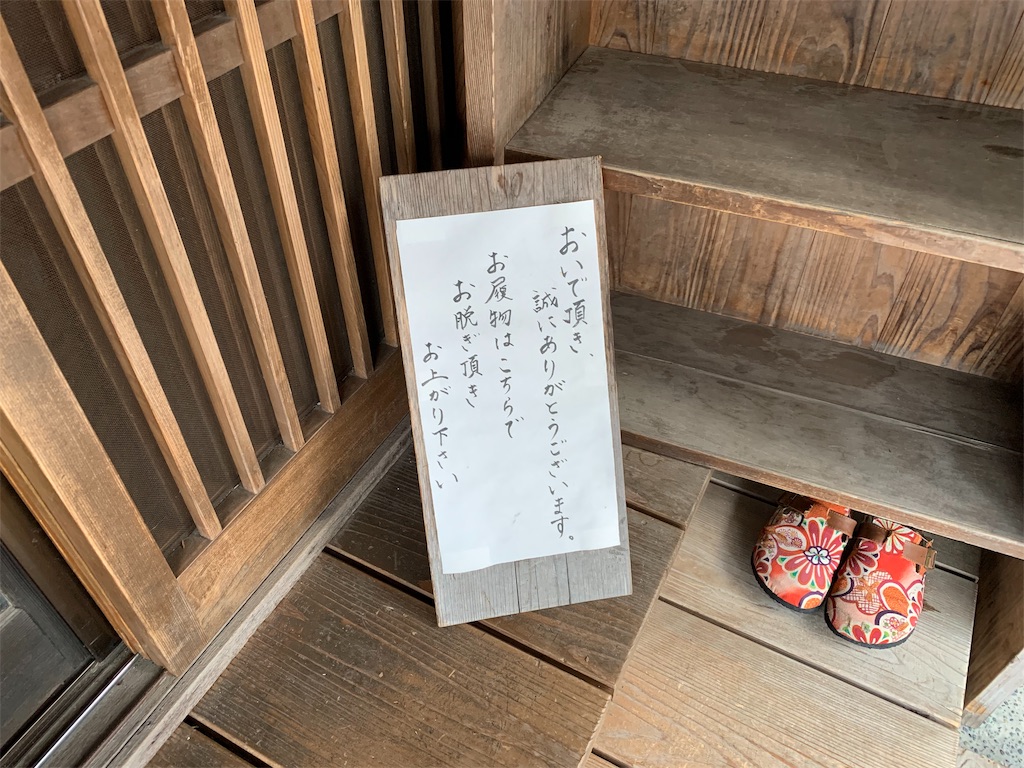 おいで頂き、
誠にありがとうございます。
お履物はこちらで
お脱ぎ頂き
お上がり下さい